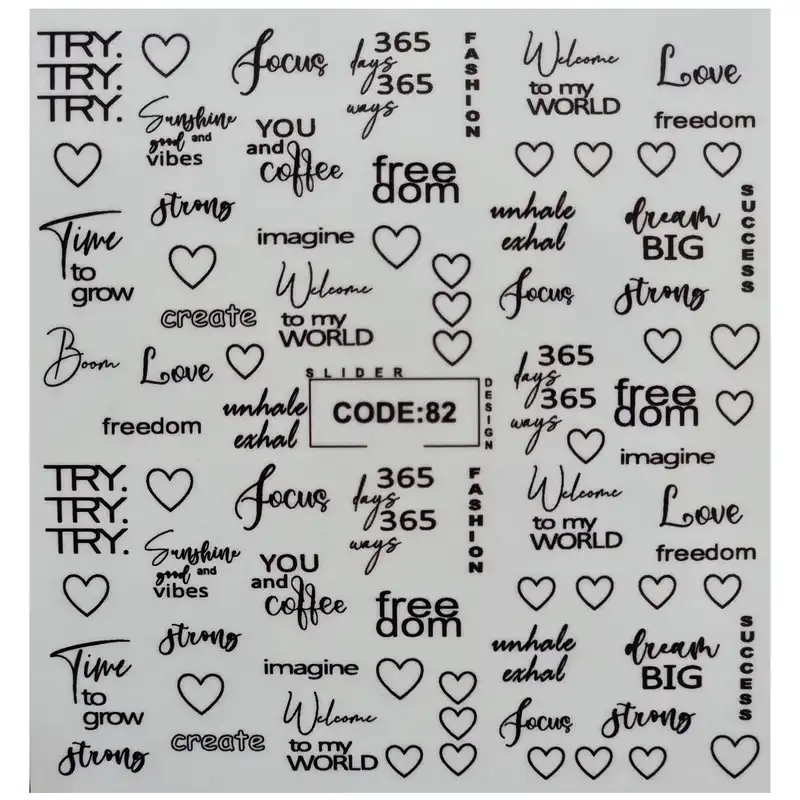 TRY.
TRY.
TRY.
Focus
365
days
365
ways
FASHION
Welcome
to my
WORLD
Love
freedom
Sunshine
good and
vibes
YOU
and
coffee
free
dom
strong
unhale
exhal
dream
BIG
SUCCESS
Time
to
grow
imagine
Welcome
to my
WORLD
Focus
strong
create
Boom
Love
freedom
unhale
exhal
SLIDER
CODE:82
DESIGN
365
days
365
ways
free
dom
imagine
TRY.
TRY.
TRY.
Focus
365
days
365
ways
FASHION
Welcome
to my
WORLD
Love
freedom
Sunshine
good and
vibes
YOU
and
coffee
free
dom
strong
unhale
exhal
dream
BIG
SUCCESS
Time
to
grow
imagine
Welcome
to my
WORLD
Focus
strong
create
strong